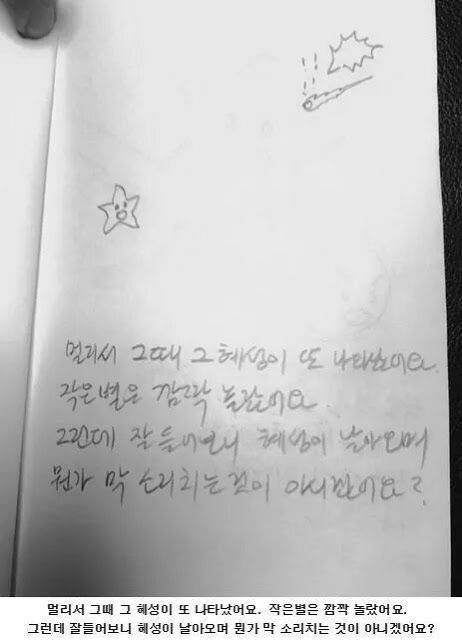 멀리서 그때 그 혜성이 또 나타났어요.
작은별은 깜짝 놀랐어요.
그런데 잘들어보니 혜성이 날아오며
뭔가 막 소리치는 것이 아니겠어요?
멀리서 그때 그 혜성이 또 나타났어요. 작은별은 깜짝 놀랐어요.
그런데 잘들어보니 혜성이 날아오며 뭔가 막 소리치는 것이 아니겠어요?